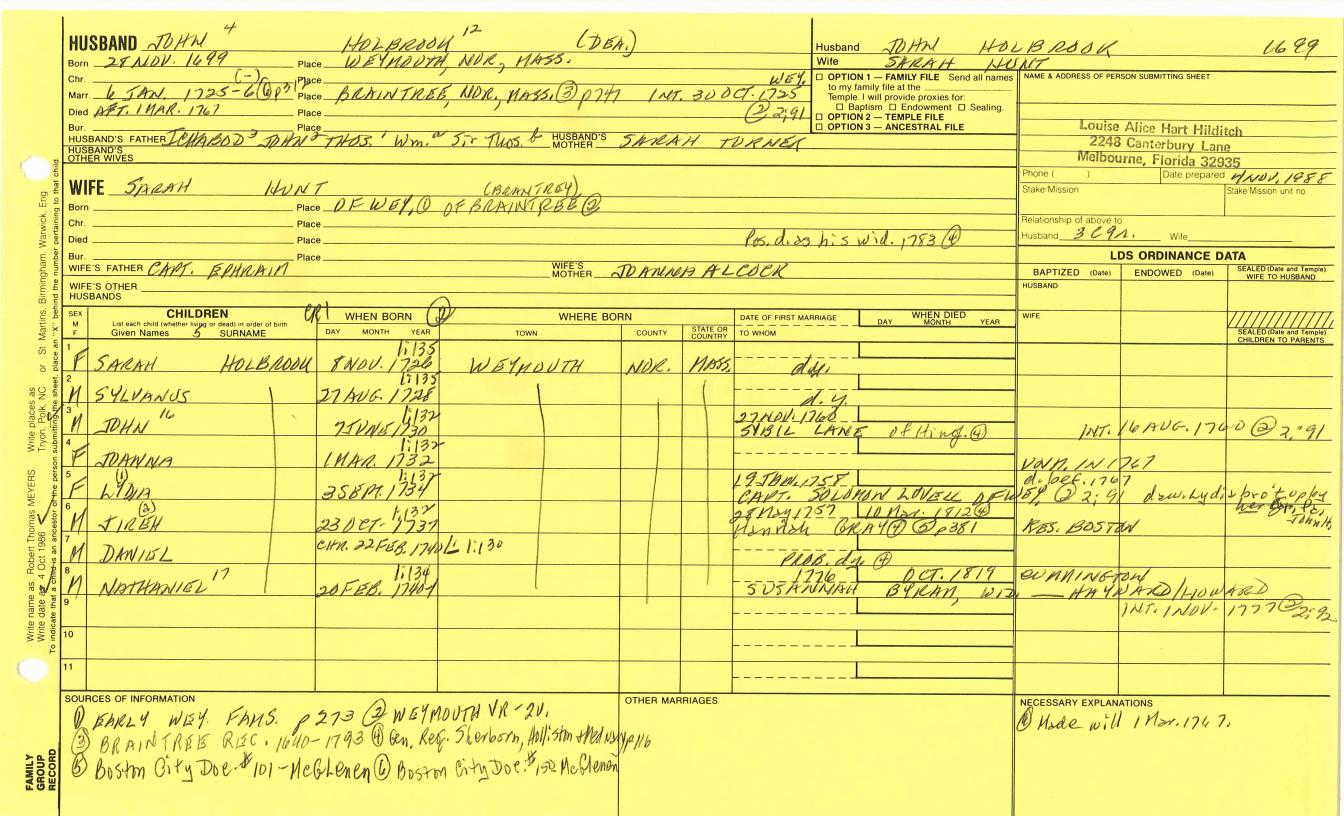 HUSBAND JOHN 4 HOLBROOK 12 (DEA.)
Born 28 NOV. 1699 Place WEYMOUTH, NOR, MASS.
Chr. (-) Place WEY.
Marr. 6 JAN. 1725-6 Place BRAINTREE, NOR, MASS. ③ p747 INT. 30 OCT. 1725
Died AFT. 1 MAR. 1767 Place ② 2:91
Bur. Place
HUSBAND'S FATHER ICHABOD 3 JOHN 2 THOS. 1 Wm. a Sir Thos. b HUSBAND'S MOTHER SARAH TURNER
HUSBAND'S OTHER WIVES
Husband JOHN HOLBROOK 1699
Wife SARAH HUNT
☐ OPTION 1 — FAMILY FILE Send all names
to my family file at the
Temple. I will provide proxies for:
☐ Baptism ☐ Endowment ☐ Sealing.
☐ OPTION 2 — TEMPLE FILE
☐ OPTION 3 — ANCESTRAL FILE
NAME & ADDRESS OF PERSON SUBMITTING SHEET
Louise Alice Hart Hilditch
2248 Canterbury Lane
Melbourne, Florida 32935
Phone ( ) Date prepared NOV. 1988
Stake/Mission Stake/Mission unit no.
Relationship of above to
Husband Wife
WIFE SARAH HUNT (BRANTREY)
Born Place OF WEY, ① OF BRAINTREE ②
Chr. Place
Died Place Pos. d. as his wid. 1783 ④
Bur. Place
WIFE'S FATHER CAPT. EPHRAIM WIFE'S MOTHER JOANNA ALCOCK
WIFE'S OTHER HUSBANDS
LDS ORDINANCE DATA
BAPTIZED (Date) ENDOWED (Date) SEALED (Date and Temple) WIFE TO HUSBAND
HUSBAND
WIFE
SEALED (Date and Temple) CHILDREN TO PARENTS
SEX M F CHILDREN CR1 WHEN BORN ② WHERE BORN DATE OF FIRST MARRIAGE WHEN DIED
List each child (whether living or dead) in order of birth
Given Names 5 SURNAME DAY MONTH YEAR TOWN COUNTY STATE OR COUNTRY TO WHOM DAY MONTH YEAR
1 1:135
F SARAH HOLBROOK 8 NOV. 1726 WEYMOUTH NOR. MASS. d.y.
2 1:135
M SYLVANUS 27 AUG. 1728 d.y.
3 1:132 27 NOV. 1760
M JOHN 16 7 JUNE 1730 SYBIL LANE of Hing. ④ INT. 16 AUG. 1760 ② 2:91
4 1:132
F JOANNA 1 MAR. 1732 UNM. IN 1767
5 (1) 1:132 19 JAN. 1758 d. bef. 1767
F LYDIA 3 SEPT. 1734 CAPT. SOLOMON LOVELL OF WEY, ② 2:91 dau. Lydia bro't up by
6 (2) 1:132 28 May 1757 10 Mar. 1812 ④
M JIREH 23 OCT. 1737 Hannah GRAY ④ ⑤ p381 RES. BOSTON
7
M DANIEL CHR. 22 FEB. 1740/1 1:130 PROB. dy. ④
8 1:134 1776 OCT. 1819 CUMMINGTON
M NATHANIEL 17 20 FEB. 1740/1 SUSANNAH BYRAM, WID. — HAYWARD/HOWARD
9 INT. 1 NOV. 1777 ② 2:92
10
11
SOURCES OF INFORMATION
① EARLY WEY FAMS. p 273 ② WEYMOUTH VR-2V.
③ BRAINTREE REC. 1640-1793 ④ Gen. Reg. Sherborn, Holliston + Medway p116
⑤ Boston City Doc. #101-McGlenen ⑥ Boston City Doc. #150 McGlenen
OTHER MARRIAGES
NECESSARY EXPLANATIONS
Made will 1 Mar. 1767.
FAMILY GROUP RECORD
Write name as Robert Thomas MEYERS Write places as Tryon, Polk, NC or St Martins, Birmingham, Warwick, Eng
Write date as 4 Oct 1986
To indicate that a child is an ancestor of the person submitting the sheet, place an "X" behind the number pertaining to that child